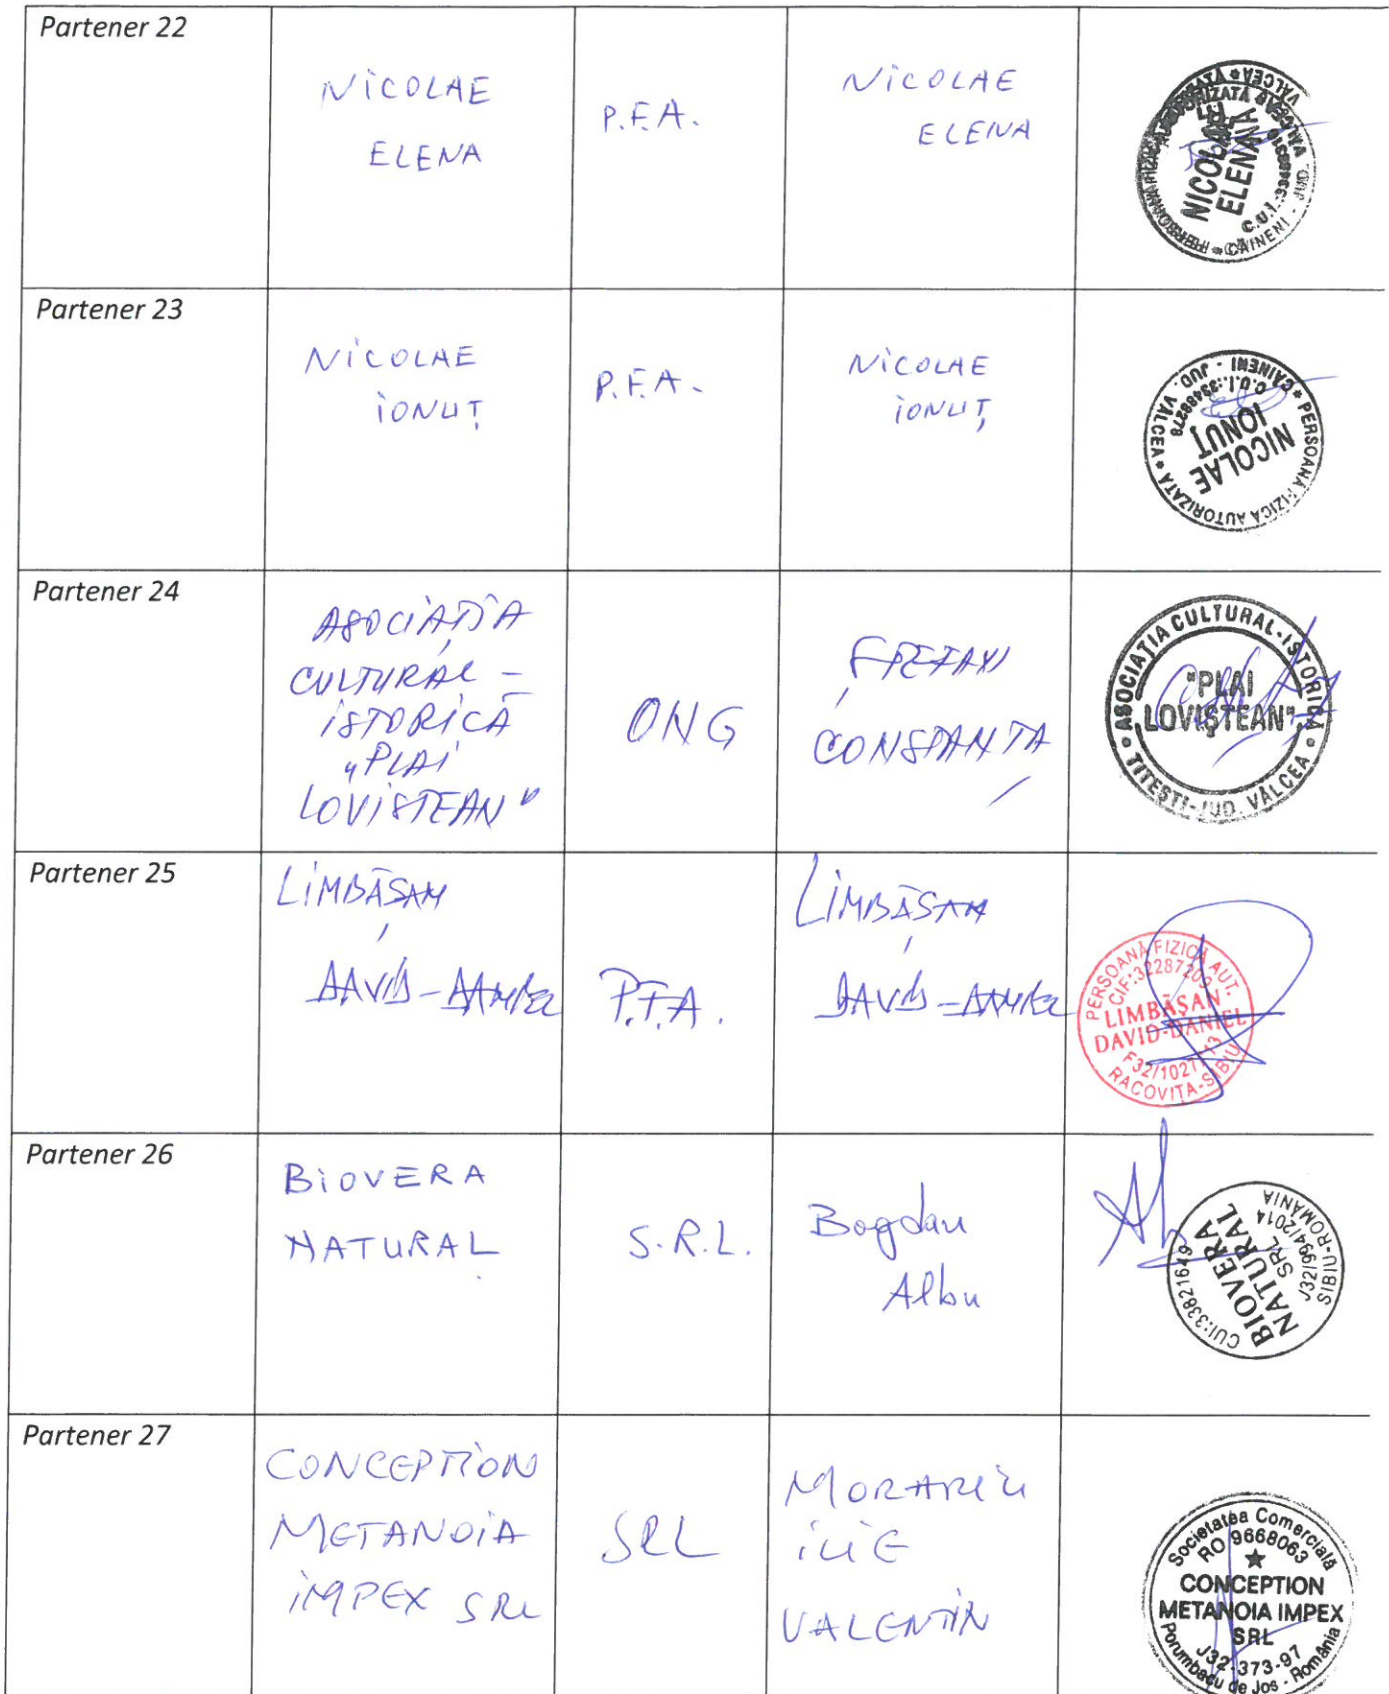 Partener 22
NiCOLAE
ELENA
P.F.A.
NiCOLAE
ELENA
NICOLAE
ELENA
C.U.I.
CAINENI - JUD.
VALCEA
Partener 23
NiCOLAE
iONUȚ
P.F.A.
NiCOLAE
iONUȚ
PERSOANA FIZICA AUTORIZATA * VALCEA
CAINENI - JUD.
C.U.I.:33489278
NICOLAE
IONUȚ
Partener 24
ASOCIAȚIA
CULTURAL -
iSTORiCĂ
„PLAI
LOVIȘTEAN"
ONG
CONSTANTA
ASOCIAȚIA CULTURAL-ISTORICA
"PLAI
LOVIȘTEAN"
TITEȘTI-JUD. VÂLCEA
Partener 25
LiMBĂȘAN
DAVID-DANIEL
P.F.A.
LiMBĂȘAN
DAVID-DANIEL
PERSOANĂ FIZICĂ AUT.
LIMBĂȘAN
DAVID-DANIEL
RACOVIȚA-SIBIU
Partener 26
BiOVERA
NATURAL
S.R.L.
Bogdan
Albu
CUI:33821649
BIOVERA
NATURAL
SRL
J32/994/2014
SIBIU-ROMÂNIA
Partener 27
CONCEPTiON
METANOiA
iMPEX SRL
SRL
MORARiu
iLiE
VALENTiN
Societatea Comercială
RO 9668063
CONCEPTION
METANOIA IMPEX
SRL
J32-373-97
Porumbacu de Jos - România